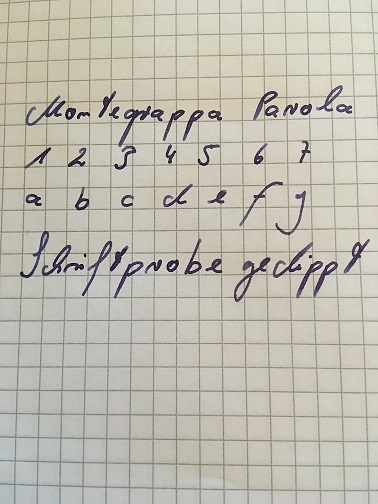 Montegrappa Parola
1 2 3 4 5 6 7
a b c d e f g
Schriftprobe gedippt